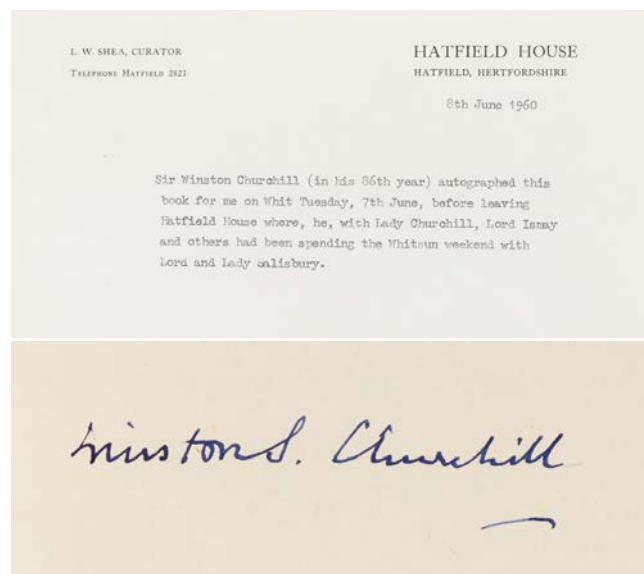 L. W. SHEA, CURATOR
TELEPHONE HATFIELD 2823
HATFIELD HOUSE
HATFIELD, HERTFORDSHIRE
8th June 1960
Sir Winston Churchill (in his 86th year) autographed this
book for me on Whit Tuesday, 7th June, before leaving
Hatfield House where, he, with Lady Churchill, Lord Ismay
and others had been spending the Whitsun weekend with
Lord and Lady Salisbury.
Winston S. Churchill